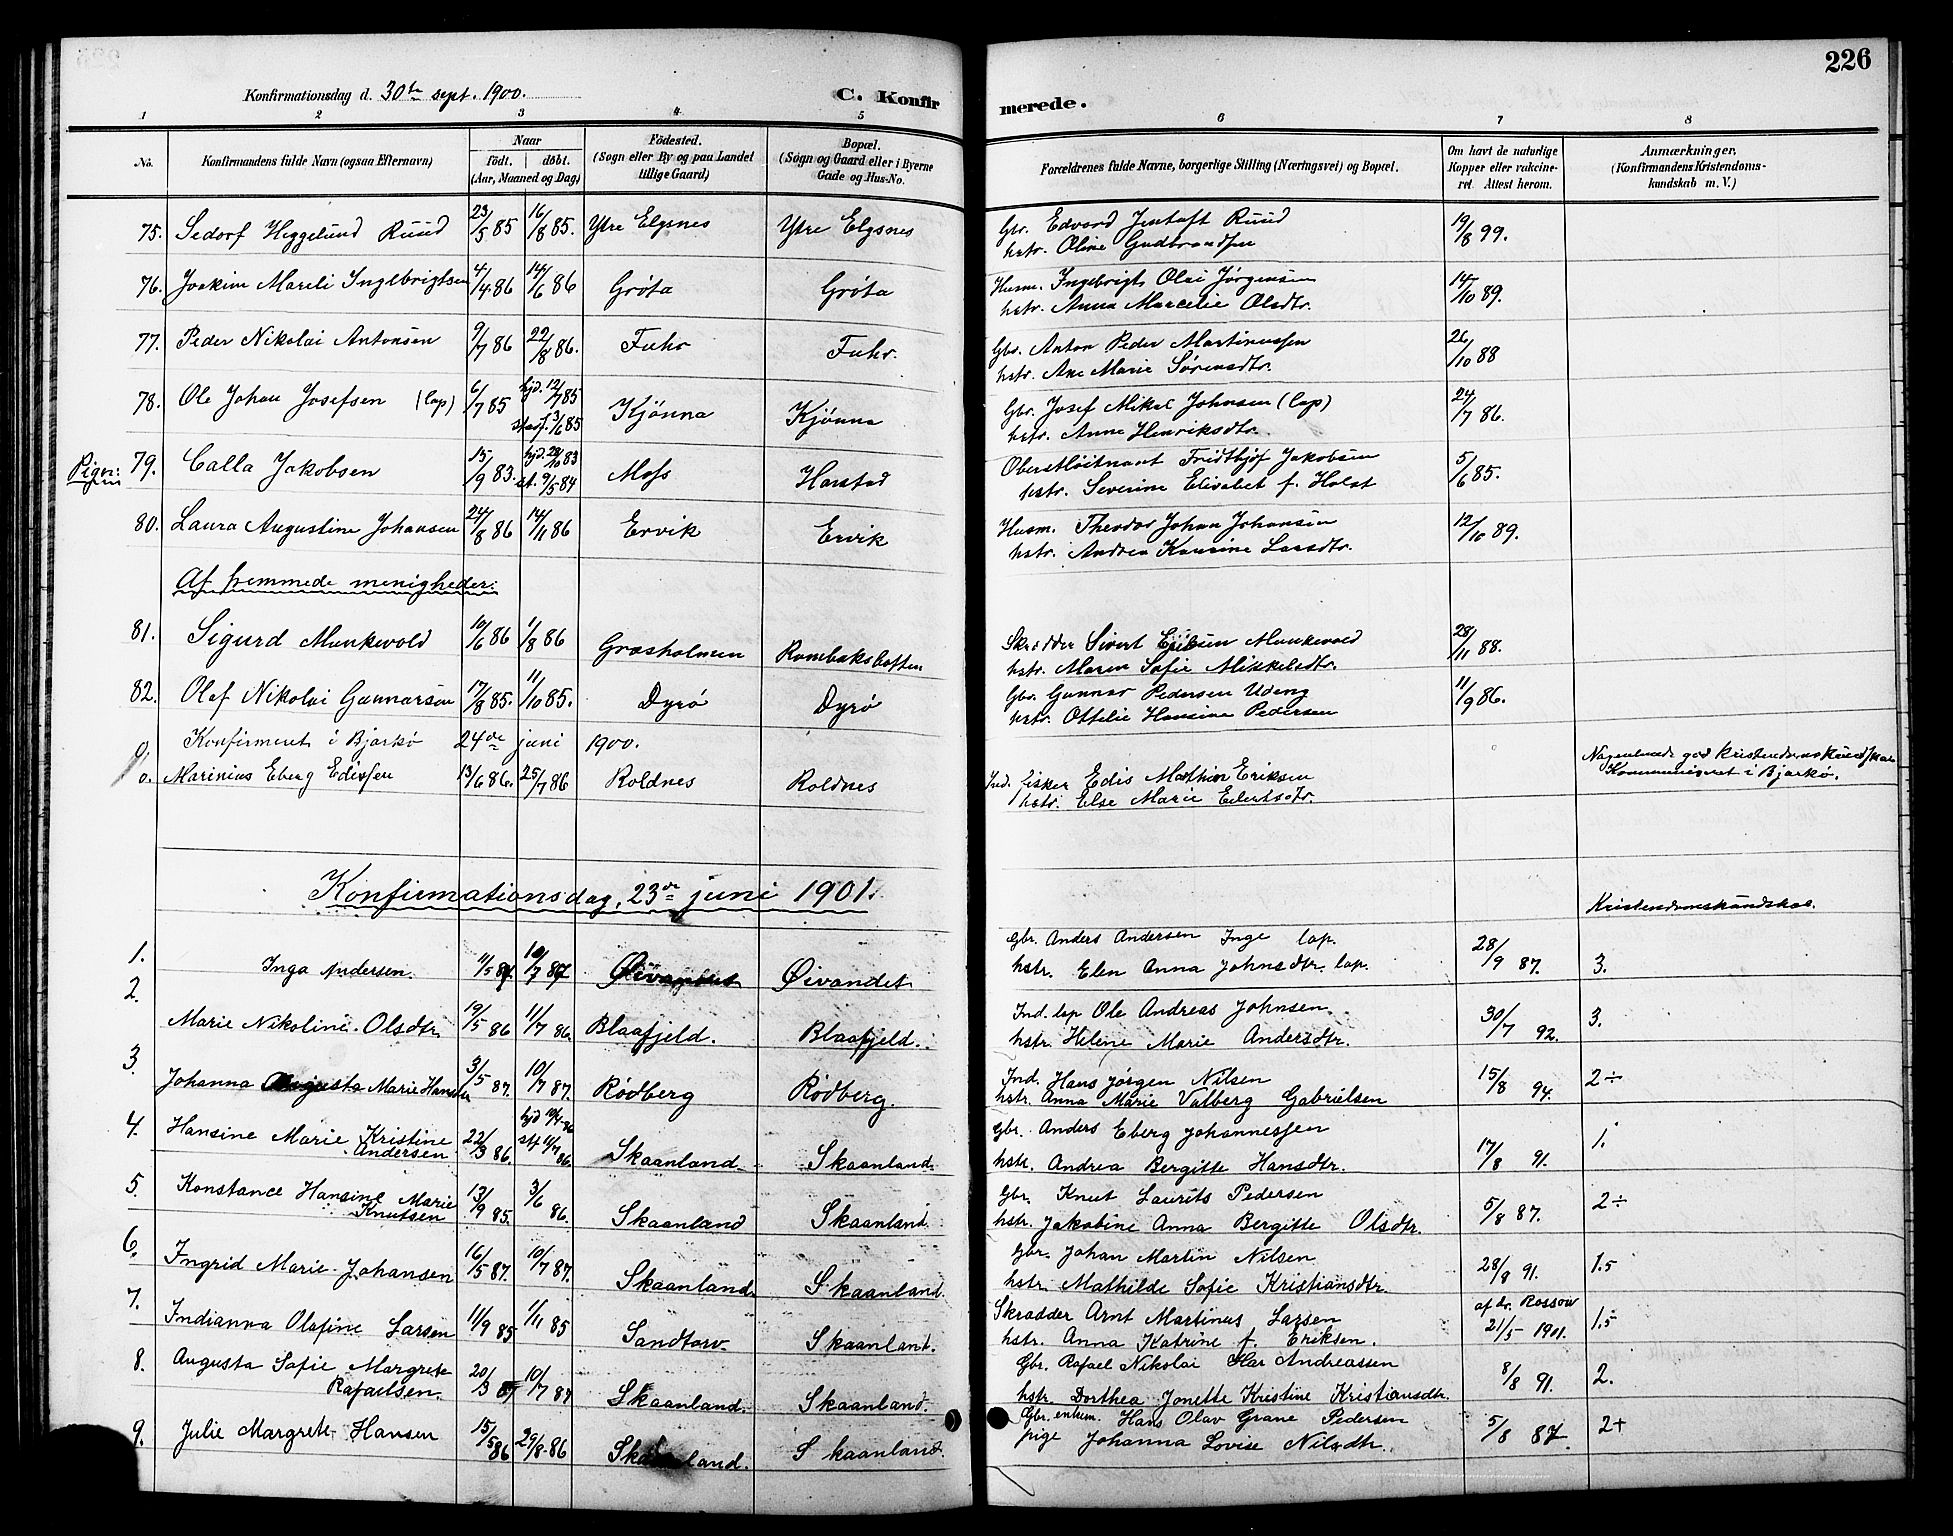 226
Konfirmationsdag d. 30te sept. 1900.
C. Konfirmerede.
1 2 3 4 5 6 7 8
No. Konfirmandens fulde Navn (ogsaa Efternavn) Naar født. døbt. (Aar, Maaned og Dag) Födested. (Sogn eller By og paa Landet tillige Gaard) Bopæl. (Sogn og Gaard eller i Byerne Gade og Hus-No. Forældrenes fulde Navne, borgerlige Stilling (Næringsvei) og Bopæl. Om havt de naturlige Kopper eller vakcineret. Attest herom. Anmærkninger. (Konfirmandens Kristendomskundskab m. V.)
75. Sedorf Heggelund Ruud 23/5 85 16/8 85. Ytre Elgsnes Ytre Elgsnes Gbr. Edvard Jentoft Ruud 19/8 99.
hstr. Oline Gudbrandsen
76. Joakim Mareli Ingebrigtsen 4/4 86 14/6 86 Gröta Gröta Husm. Ingebrigt Olai Jørgensen 14/10 89.
hstr. Anna Marcelie Olsdtr.
77. Peder Nikolai Antonsen 9/7 86 22/8 86. Fuhr Fuhr. Gbr. Anton Peder Martinussen 26/10 88
hstr. Ane Marie Sørensdtr.
78. Ole Johan Josefsen (lap) 6/7 85 hjd. 12/7 85 Kjønna Kjønna Gbr. Josef Mikal Johnsen (lap) 24/7 86.
hstr. Anne Henriksdtr.
Piger: 79. Calla Jakobsen 15/9 83. hjd. 28/10 83 st. 9/5 84 Moss Harstad Oberstløitnant Fridthjof Jakobsen 5/6 85.
hstr. Severine Elisabet f. Holst
80. Laura Augustine Johansen 24/8 86 14/11 86 Ervik Ervik Husm. Theodor Johan Johansen 12/10 89.
hstr. Andrea Kaurine Larsdtr.
Af fremmede menigheder:
81. Sigurd Munkevold 10/6 86 1/8 86 Græsholmen Rombaksbotten Skrædder Sivert Munkevold 28/11 88.
hstr. Maren Sofie Mikkelsdtr.
82. Olaf Nikolai Gunnarsen 17/8 85. 11/10 85. Dyrö Dyrö Gbr. Gunnar Pedersen Udeng 11/9 86.
hstr. Ottelie Hansine Pedersen
0. Konfirmeret i Bjarkö 24de juni 1900.
0. Marinius Eberg Edissen 13/6 86. 25/7 86 Roldnes Roldnes Ind. fisker Edis Mathias Eriksen Nogenlunde god kristendomskundskab.
hstr. Else Marie Eilertsdtr. Kommuniceret i Bjarkö.
Konfirmationsdag, 23de juni 1901.
Kristendomskundskab.
1. Inga Andersen. 11/5 87. 10/7 87 Øivandet Øivandet Gbr. Anders Andersen Inge lap. 28/9 87. 3.
hstr. Elen Anna Johnsdtr. lap.
2. Marie Nikoline Olsdtr 19/5 86 11/7 86. Blaafjeld. Blaafjeld. Ind. lap Ole Andreas Johnsen. 30/7 92. 3.
hstr. Helene Marie Andersdtr.
3. Johanna Augusta Marie Hansen 3/5 87. 10/7 87. Rödberg Rödberg. Ind. Hans Jörgen Nilsen 15/8 94. 2÷
hstr. Anna Marie Valberg Gabrielsen
4. Hansine Marie Kristine Andersen 22/3 86. Skaanland. Skaanland. Gbr. Anders Eberg Johannessen 17/8 91. 1.
hstr. Andrea Bergitte Hansdtr.
5. Konstance Hansine Marie Knutsen 13/9 85. 3/6 86. Skaanland Skaanland. Gbr. Knut Laurits Pedersen 5/8 87. 2÷
hstr. Jakobine Anna Bergitte Olsdtr.
6. Ingrid Marie Johansen 16/5 87. 10/7 87. Skaanland. Skaanland. Gbr. Johan Martin Nilsen 28/8 91. 1.5
hstr. Mathilde Sofie Kristiansdtr.
7. Indianna Olafine Larsen 11/9 85 1/11 85 Sandtorv Skaanland. Skrædder Arnt Martinus Larsen af dr. Rossow 21/5 1901. 1.5
hstr. Anna Katrine f. Eriksen.
8. Augusta Sofie Margrete Rafaelsen. 20/3 87 10/7 87 Skaanland. Skaanland. Gbr. Rafael Nikolai Andreassen 8/8 91. 2.
hstr. Dorthea Jonette Kristine Kristiansdtr.
9. Julie Margrete Hansen 15/5 86 29/8 86 Skaanland. Skaanland. Gbr. enkem. Hans Olav Grane Pedersen 5/8 87. 2+
pige Johanna Lovise Nilsdtr.